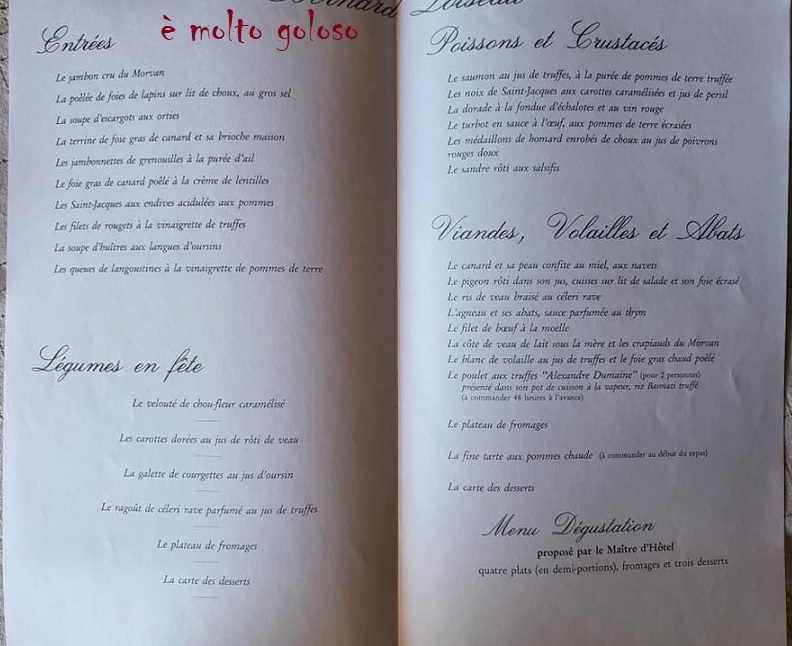 Bernard Loiseau
è molto goloso
Entrées
Le jambon cru du Morvan
La poêlée de foies de lapins sur lit de choux, au gros sel
La soupe d'escargots aux orties
La terrine de foie gras de canard et sa brioche maison
Les jambonnettes de grenouilles à la purée d'ail
Le foie gras de canard poêlé à la crème de lentilles
Les Saint-Jacques aux endives acidulées aux pommes
Les filets de rougets à la vinaigrette de truffes
La soupe d'huîtres aux langues d'oursins
Les queues de langoustines à la vinaigrette de pommes de terre
Légumes en fête
Le velouté de chou-fleur caramélisé
Les carottes dorées au jus de rôti de veau
La galette de courgettes au jus d'oursin
Le ragoût de céleri rave parfumé au jus de truffes
Le plateau de fromages
La carte des desserts
Poissons et Crustacés
Le saumon au jus de truffes, à la purée de pommes de terre truffée
Les noix de Saint-Jacques aux carottes caramélisées et jus de persil
La dorade à la fondue d'échalotes et au vin rouge
Le turbot en sauce à l'œuf, aux pommes de terre écrasées
Les médaillons de homard enrobés de choux au jus de poivrons
rouges doux
Le sandre rôti aux salsifis
Viandes, Volailles et Abats
Le canard et sa peau confite au miel, aux navets
Le pigeon rôti dans son jus, cuisses sur lit de salade et son foie écrasé
Le ris de veau braisé au céleri rave
L'agneau et ses abats, sauce parfumée au thym
Le filet de bœuf à la moelle
La côte de veau de lait sous la mère et les crapiauds du Morvan
Le blanc de volaille au jus de truffes et le foie gras chaud poêlé
Le poulet aux truffes "Alexandre Dumaine" (pour 2 personnes)
présenté dans son pot de cuisson à la vapeur, riz Basmati truffé
(à commander 48 heures à l'avance)
Le plateau de fromages
La fine tarte aux pommes chaude (à commander au début du repas)
La carte des desserts
Menu Dégustation
proposé par le Maître d'Hôtel
quatre plats (en demi-portions), fromages et trois desserts